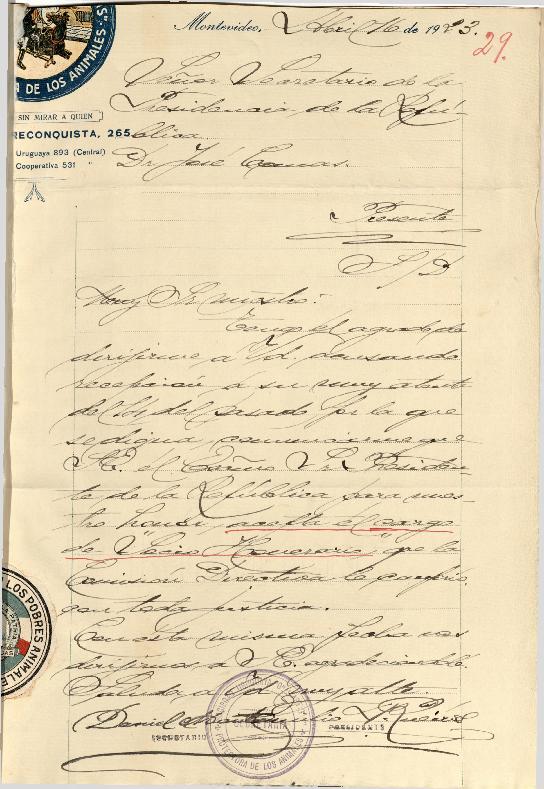 Montevideo, Abril 16 de 1923.
29.
A DE LOS ANIMALES
SIN MIRAR A QUIEN
RECONQUISTA, 265
Uruguaya 893 (Central)
Cooperativa 531 "
Señor Secretario de la
Presidencia de la Repú-
blica
Dr José
Presente
S/D
Muy Sr nuestro:
Tengo el agrado de
dirijirme a Vd. acusando
recepción a su muy atenta
del pasado por la que
se digna comunicarme que
S.E. el Sr Presiden-
te de la República para nues-
tro honor, acepta el cargo
de "Socio Honorario" que la
Comision Directiva le confirió
con toda justicia.
Con esta misma fecha nos
dirijimos a S.E. agradeciendole.
Saluda a Vd. muy atte.
LOS POBRES ANIMALES
PROTECTORA DE LOS ANIMALES
SECRETARIA
Daniel
SECRETARIO PRESIDENTE